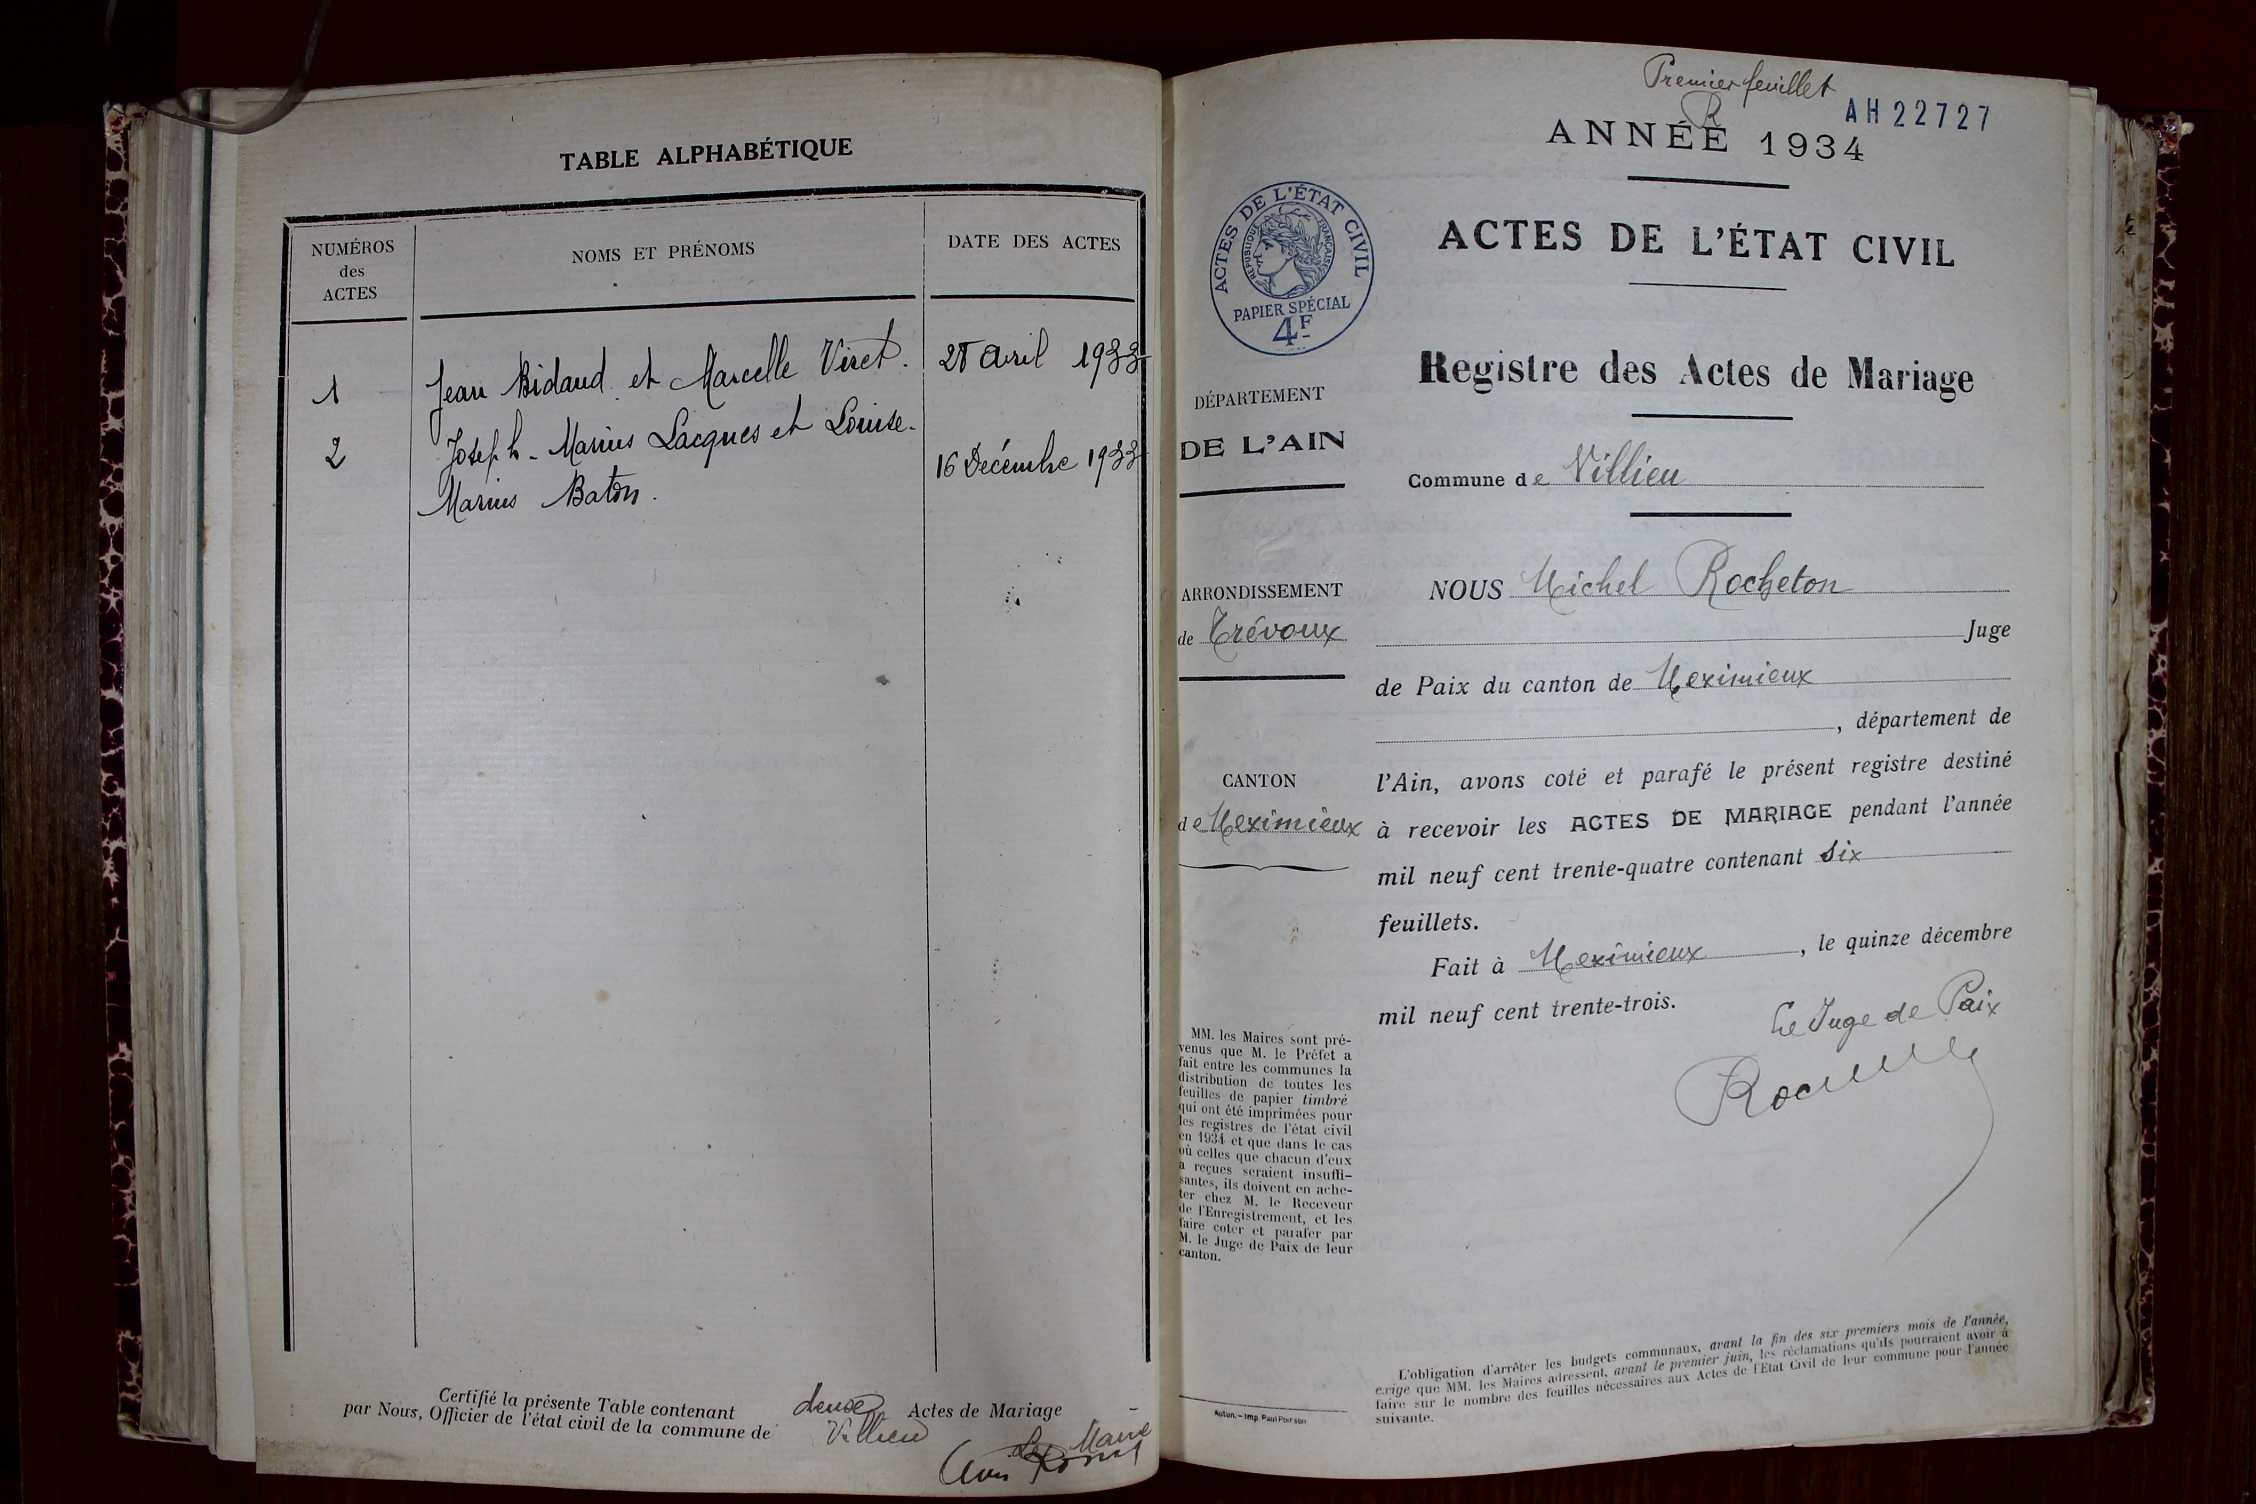 TABLE ALPHABÉTIQUE
NUMÉROS
des
ACTES
NOMS ET PRÉNOMS
DATE DES ACTES
1
Jean Bidaud et Marcelle Viret.
28 avril 1933
2
Joseph - Marius Lacques et Louise-
Marius Baton.
16 Décembre 1933
Certifié la présente Table contenant deux Actes de Mariage
par Nous, Officier de l'état civil de la commune de Villieu
Le Maire
Premier feuillet
R
AH 22727
ANNÉE 1934
ACTES DE L'ÉTAT CIVIL
RÉPUBLIQUE FRANÇAISE
PAPIER SPÉCIAL
4F
ACTES DE L'ÉTAT CIVIL
Registre des Actes de Mariage
DÉPARTEMENT
DE L'AIN
Commune de Villieu
ARRONDISSEMENT
de Trévoux
CANTON
de Meximieux
NOUS Michel Rocheton
Juge
de Paix du canton de Meximieux
, département de
l'Ain, avons coté et parafé le présent registre destiné
à recevoir les ACTES DE MARIAGE pendant l'année
mil neuf cent trente-quatre contenant six
feuillets.
Fait à Meximieux, le quinze décembre
mil neuf cent trente-trois.
Le Juge de Paix
MM. les Maires sont pré-
venus que M. le Préfet a
fait entre les communes la
distribution de toutes les
feuilles de papier timbré
qui ont été imprimées pour
les registres de l'état civil
en 1934 et que dans le cas
où celles que chacun d'eux
a reçues seraient insuffi-
santes, ils doivent en ache-
ter chez M. le Receveur
de l'Enregistrement, et les
faire coter et parafer par
M. le Juge de Paix de leur
canton.
Autun.-Imp. Paul Poirson
L'obligation d'arrêter les budgets communaux, avant la fin des six premiers mois de l'année,
exige que MM. les Maires adressent, avant le premier juin, les réclamations qu'ils pourraient avoir à
faire sur le nombre des feuilles nécessaires aux Actes de l'Etat Civil de leur commune pour l'année
suivante.